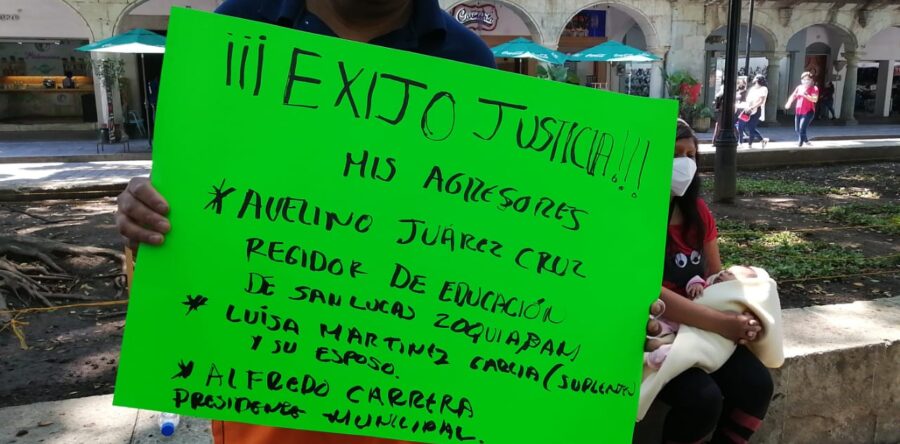 ¡¡¡EXIJO JUSTICIA!!!
MIS AGRESORES
* AVELINO JUÁREZ CRUZ
REGIDOR DE EDUCACIÓN
DE SAN LUCAS ZOQUIAPAM
* LUISA MARTINEZ GARCIA (SURGENTE)
Y SU ESPOSO.
* ALFREDO CARRERA
PRESIDENTE MUNICIPAL.